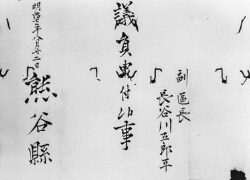 副區長
長谷川五郎平
議員申付候事
明治年八月廿二日
熊谷縣